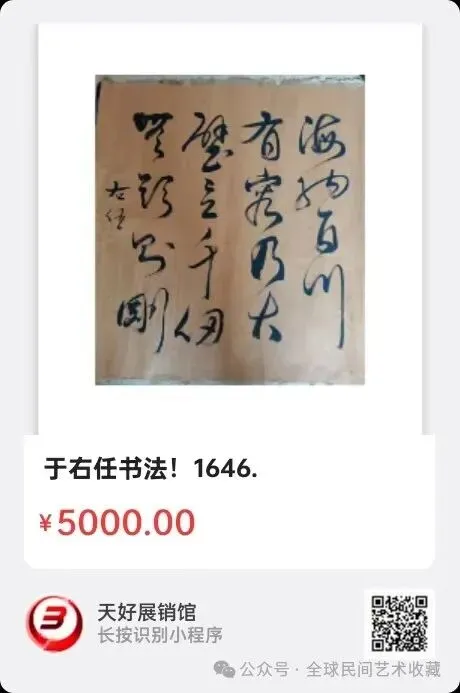 海納百川
有容乃大
壁立千仞
無欲則剛
右任
于右任书法！1646.
¥5000.00
天好展销馆
长按识别小程序
公众号 · 全球民间艺术收藏